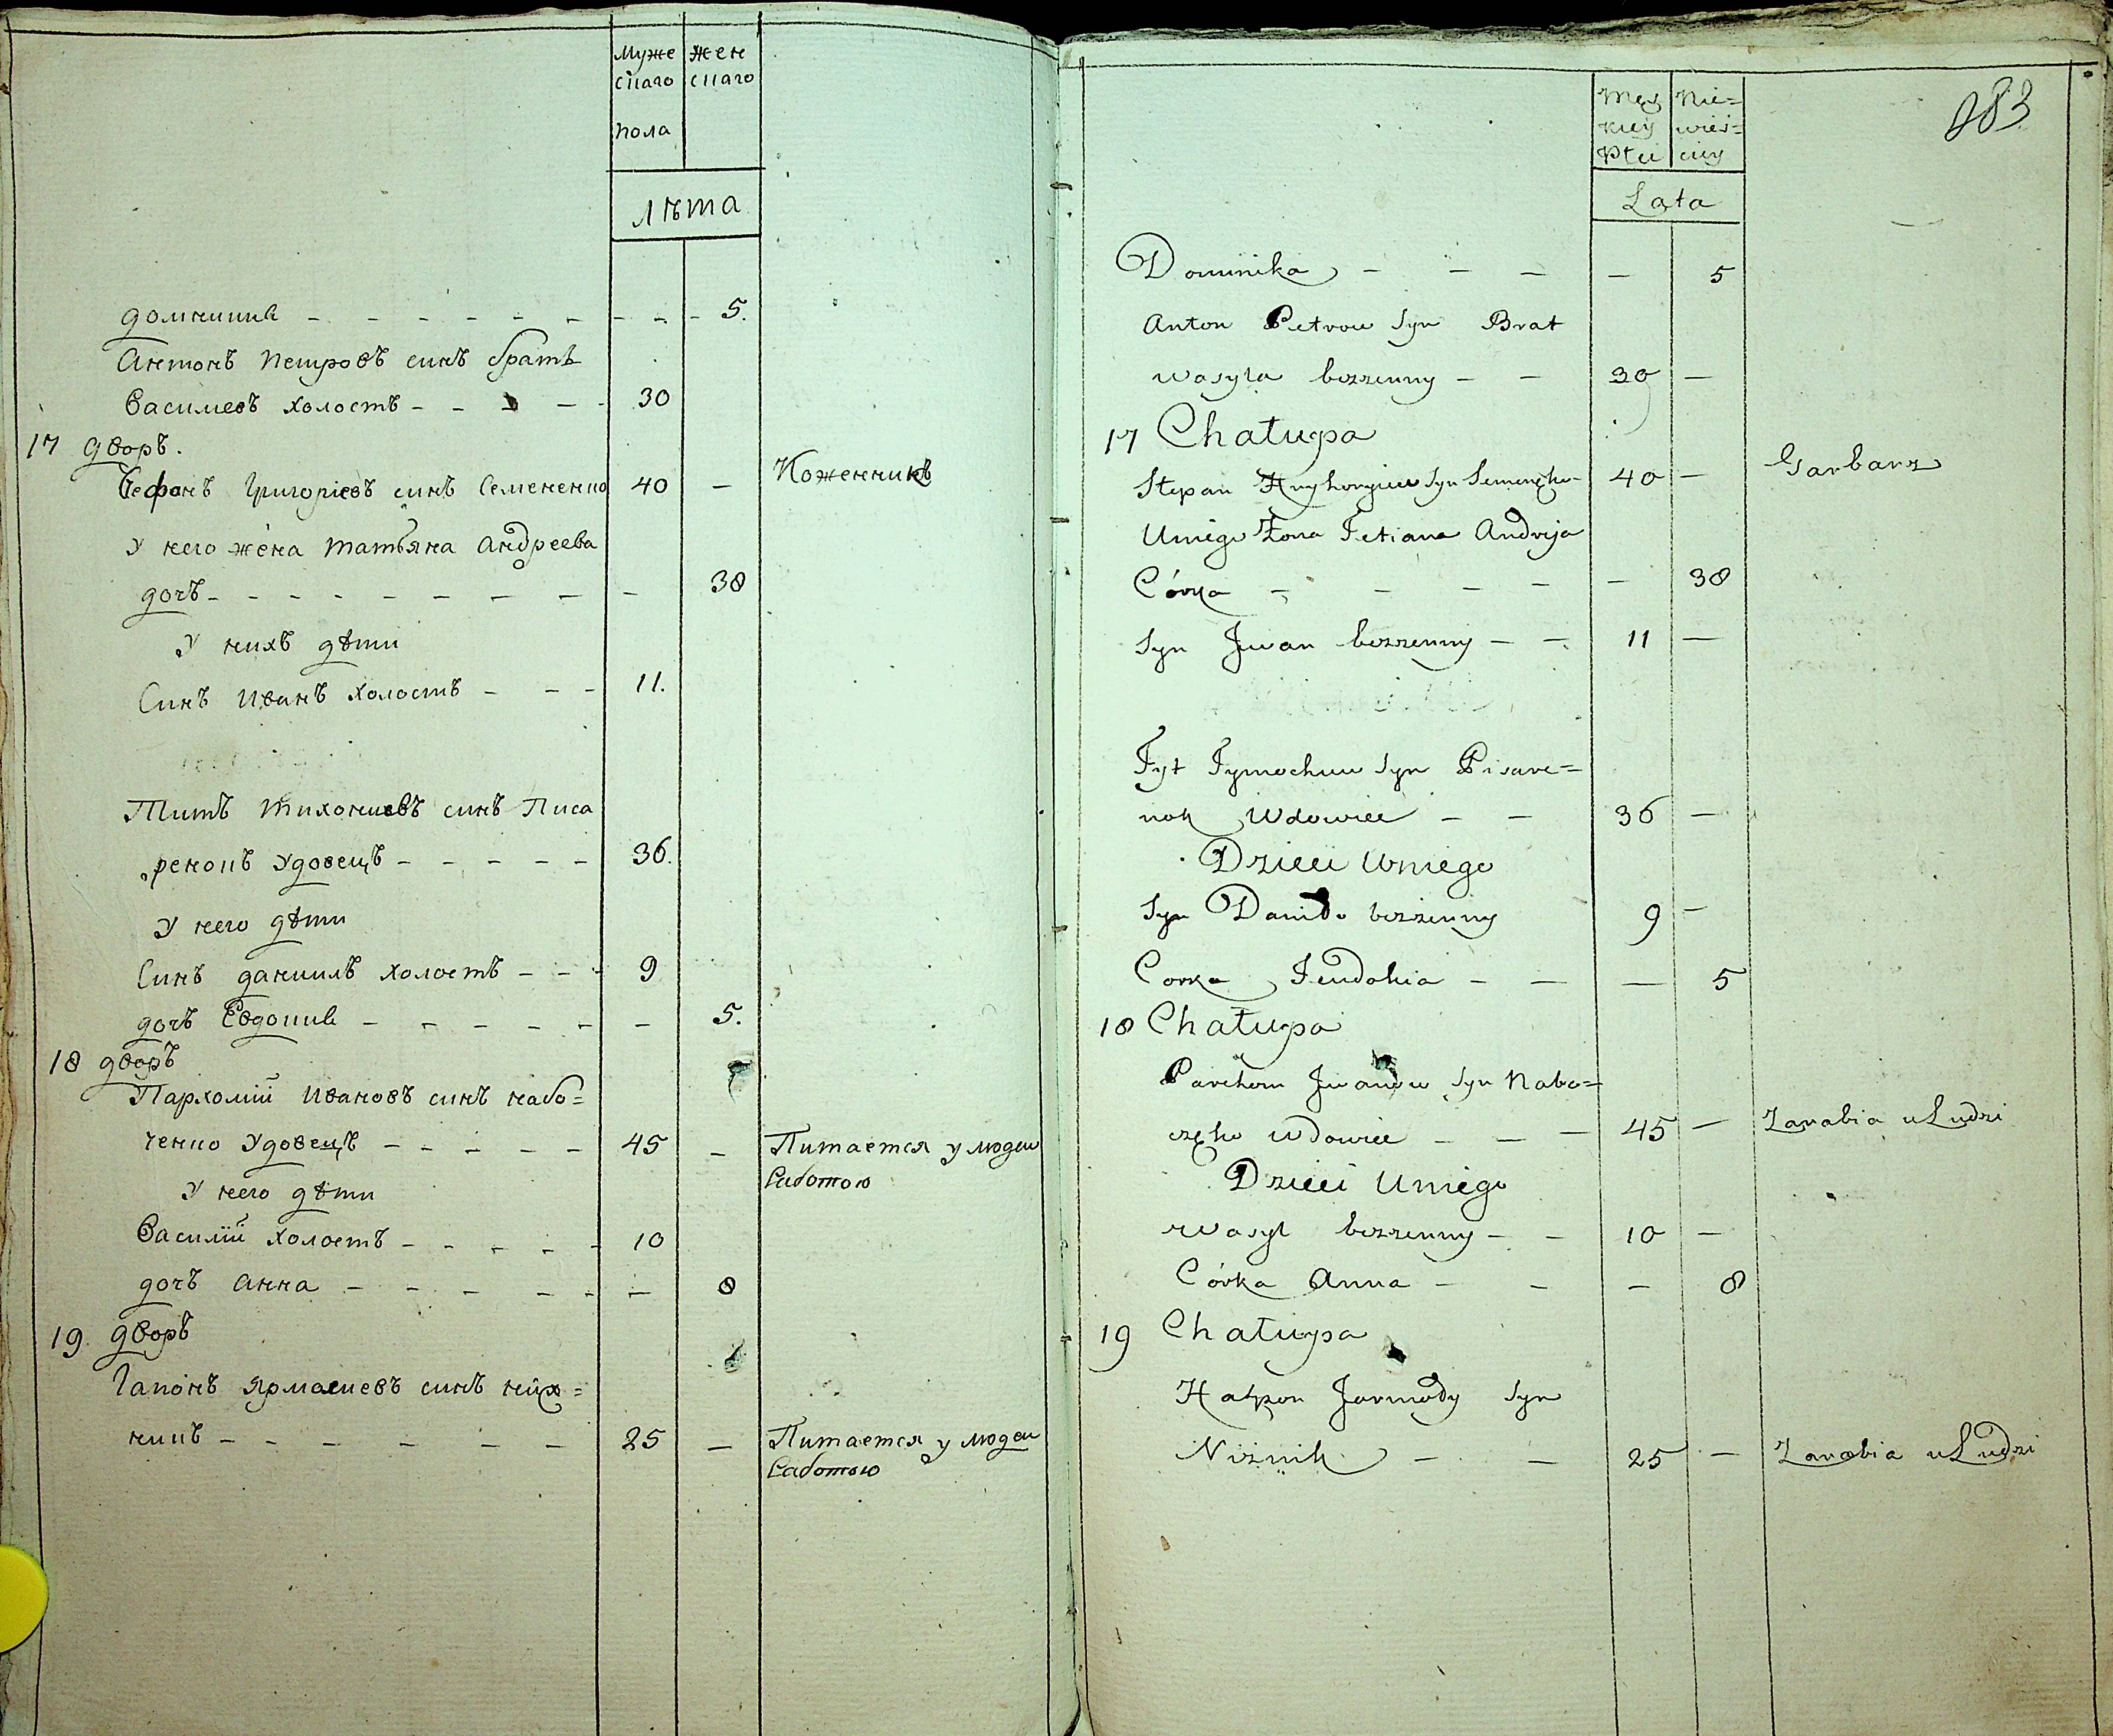 Муже
скаго
пола
Жен
скаго
Лѣта
Домникия - - - - - - - - - 5.
Антонъ Петровъ синъ братъ
Василеевъ холостъ - - - - - 30
17 дворъ.
Стефанъ Григориевъ синъ Семененко 40 - Коженникъ
У него жена Татьяна Андреева
дочъ - - - - - - - - - 38
У нихъ дѣти
Синъ Иванъ холостъ - - - 11.
Титъ Тихониевъ синъ Писа
„ренокъ удовецъ - - - - - 36.
У него дѣти
Синъ Даниилъ холостъ - - - 9
дочъ Евдокия - - - - - - 5.
18 дворъ
Пархомий Ивановъ синъ набо=
ченко удовецъ - - - - - 45 - Питается у людеи
работою
У него дѣти
Василий холостъ - - - - - 10
дочъ Анна - - - - - - - 8
19. дворъ
Гапонъ Ярмолиевъ синъ ниж=
никъ - - - - - - 25 - Питается у людеи
работою
283
Męz
kiey
Płci
Nie=
wieś=
ciey
Lata
Dominika - - - - 5
Anton Petrow Syn Brat
Wasyla bezzenny - - 30 -
17 Chałupa
Stepan Hryhoryiew Syn Semenęko - 40 - Garbarz
Uniego Żona Tetiana Andreja
Córka - - - - - 38
Syn Jwan bezzenny - - 11 -
Tyt Tymochiw Syn Pisare=
nok Wdowiec - - 36 -
Dzieci Uniego
Syn Daniło bezżenny 9 -
Corka Jeudokia - - - 5
18 Chałupa
Parchom Jwanow Syn Nabo=
częko Wdowiec - - - 45 - Zarabia u Ludzi
Dzieci Uniego
Wasyl bezzenny - - 10 -
Córka Anna - - - 8
19 Chałupa
Hapon Jarmoły Syn
Niżnik - - 25 - Zarabia u Ludzi